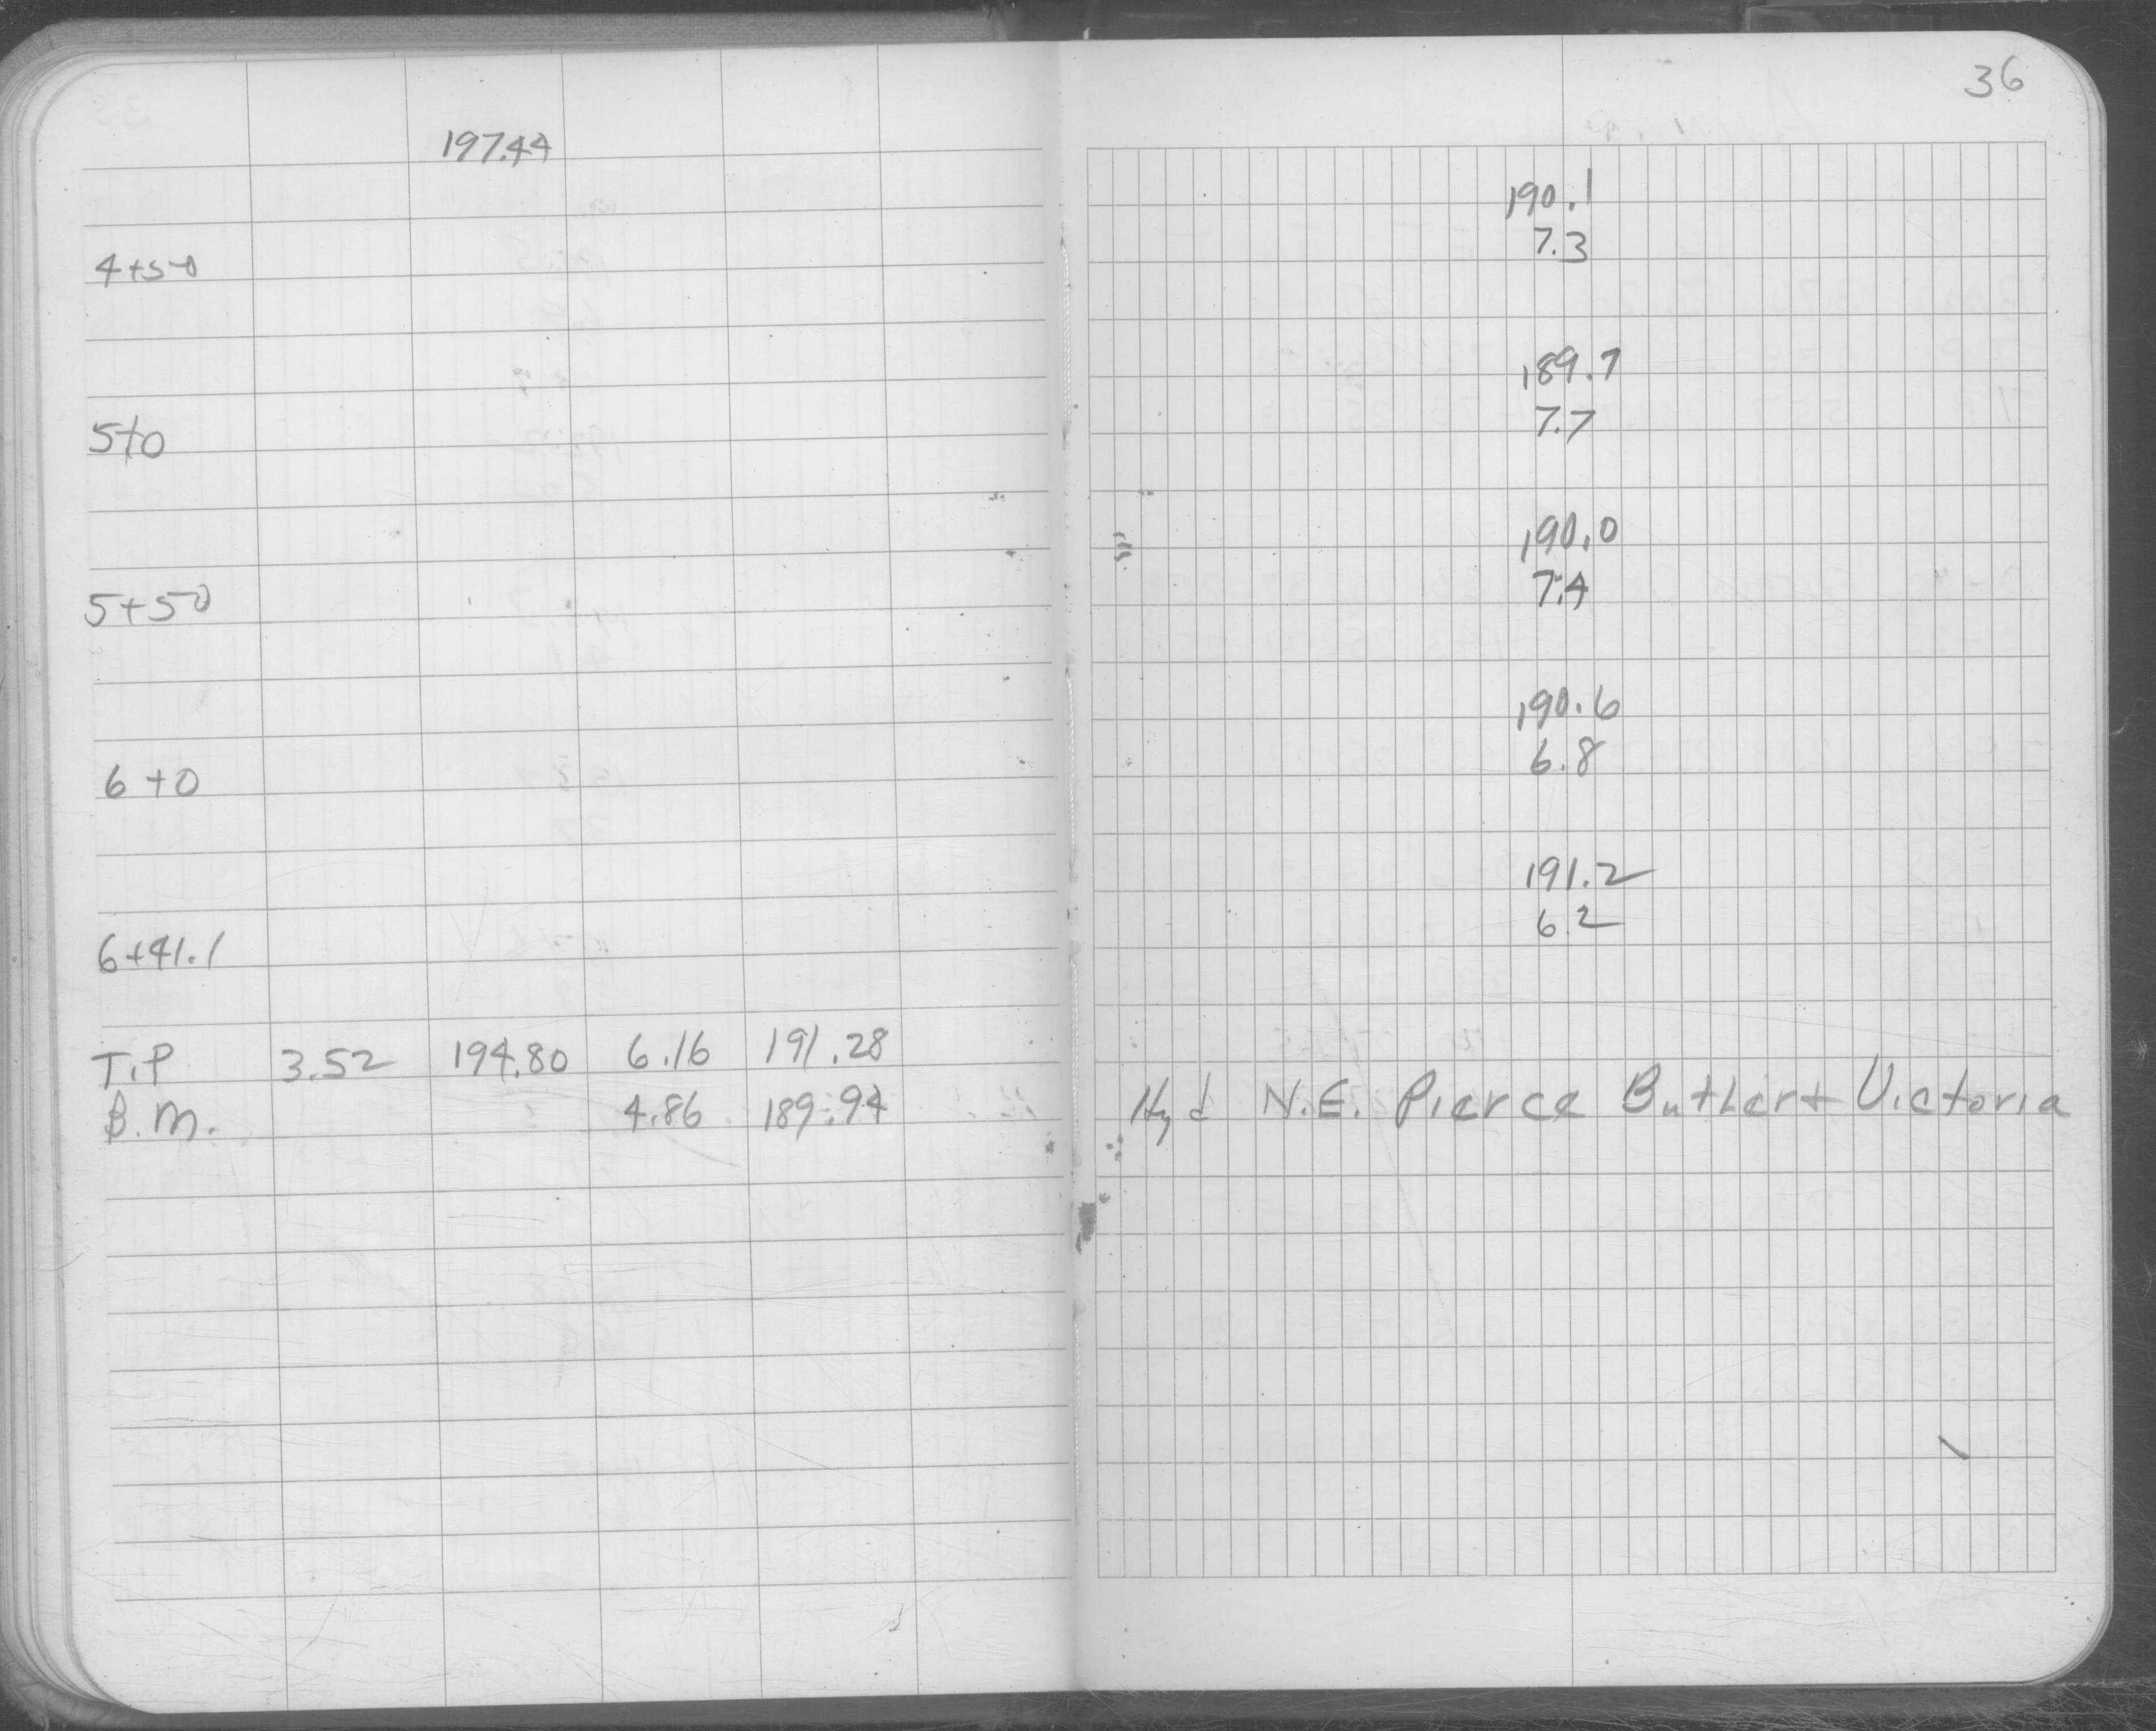 36
197.44
190.1
7.3
4+50
189.7
7.7
5+0
190.0
7.4
5+50
190.6
6.8
6+0
191.2
6.2
6+41.1
T.P 3.52 194.80 6.16 191.28
B.M. 4.86 189.94 Hyd N.E. Pierce Butler + Victoria